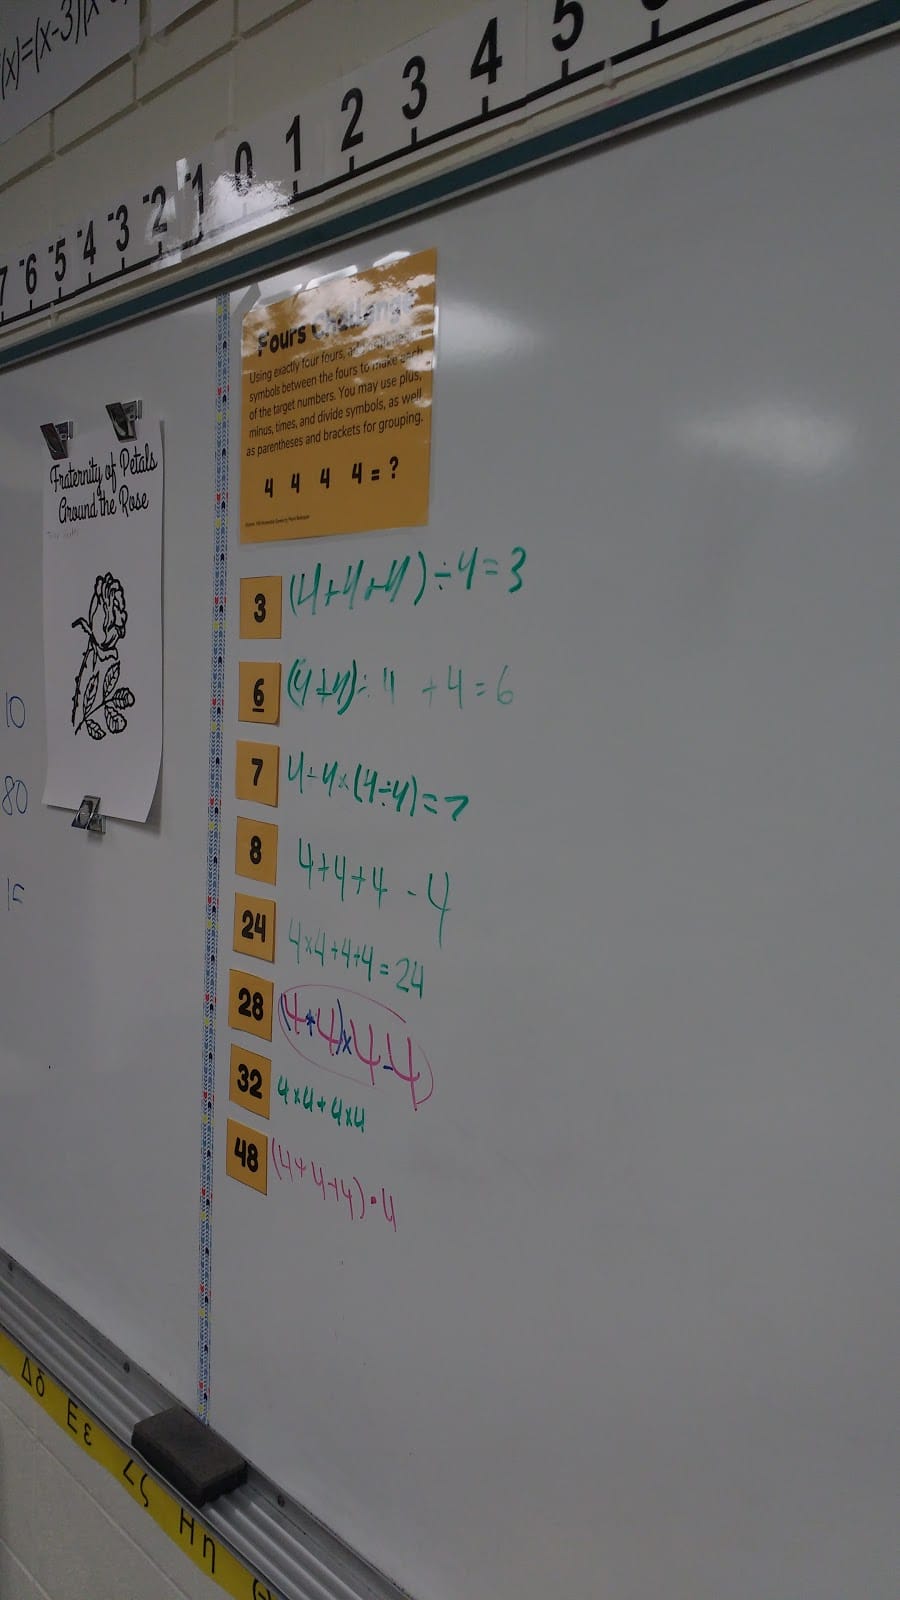 (x)=(x-3)(x
7 -6 -5 -4 -3 -2 -1 0 1 2 3 4 5
Fours Challenge
Using exactly four fours, add
symbols between the fours to make each
of the target numbers. You may use plus,
minus, times, and divide symbols, as well
as parentheses and brackets for grouping.
4 4 4 4 = ?
Fraternity of Petals
Around the Rose
10
80
15
3 (4+4+4)÷4=3
6 (4+4)÷4 +4=6
7 4+4×(4÷4)=7
8 4+4+4-4
24 4×4+4+4=24
28 (4+4)×4-4
32 4×4+4×4
48 (4+4+4)•4
Δδ Εε Ζζ Ηη Θ